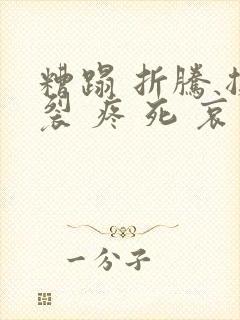 糟蹋 折騰
裂 疼 死 哀
一分子